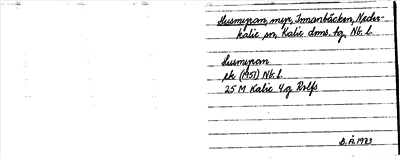 Slusmyran, myr, Innanbäcken, Neder-
kalix sn, Kalix dms. tg, Nb. l.
Slusmyran
ek (1951) Nb. l.
25 M Kalix 4g Rolfs
D.Å. 1973